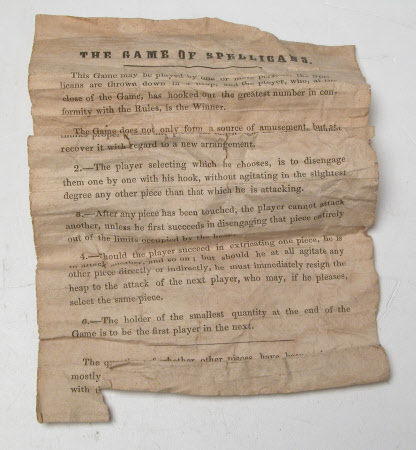 THE GAME OF SPELLICANS.
This Game may be played by one or more
licans are thrown down in a heap, and the player, who, at the
close of the Game, has hooked out the greatest number in con-
formity with the Rules, is the Winner.
The Game does not only form a source of amusement, but
recover it with regard to a new arrangement.
2.—The player selecting which he chooses, is to disengage
them one by one with his hook, without agitating in the slightest
degree any other piece than that which he is attacking.
3.—After any piece has been touched, the player cannot attack
another, unless he first succeeds in disengaging that piece entirely
out of the limits occupied by the
4.—Should the player succeed in extricating one piece, he is
another, and so on; but should he at all agitate any
other piece directly or indirectly, he must immediately resign the
heap to the attack of the next player, who may, if he pleases,
select the same piece.
6.—The holder of the smallest quantity at the end of the
Game is to be the first player in the next.
The whether other pieces have
mostly
with